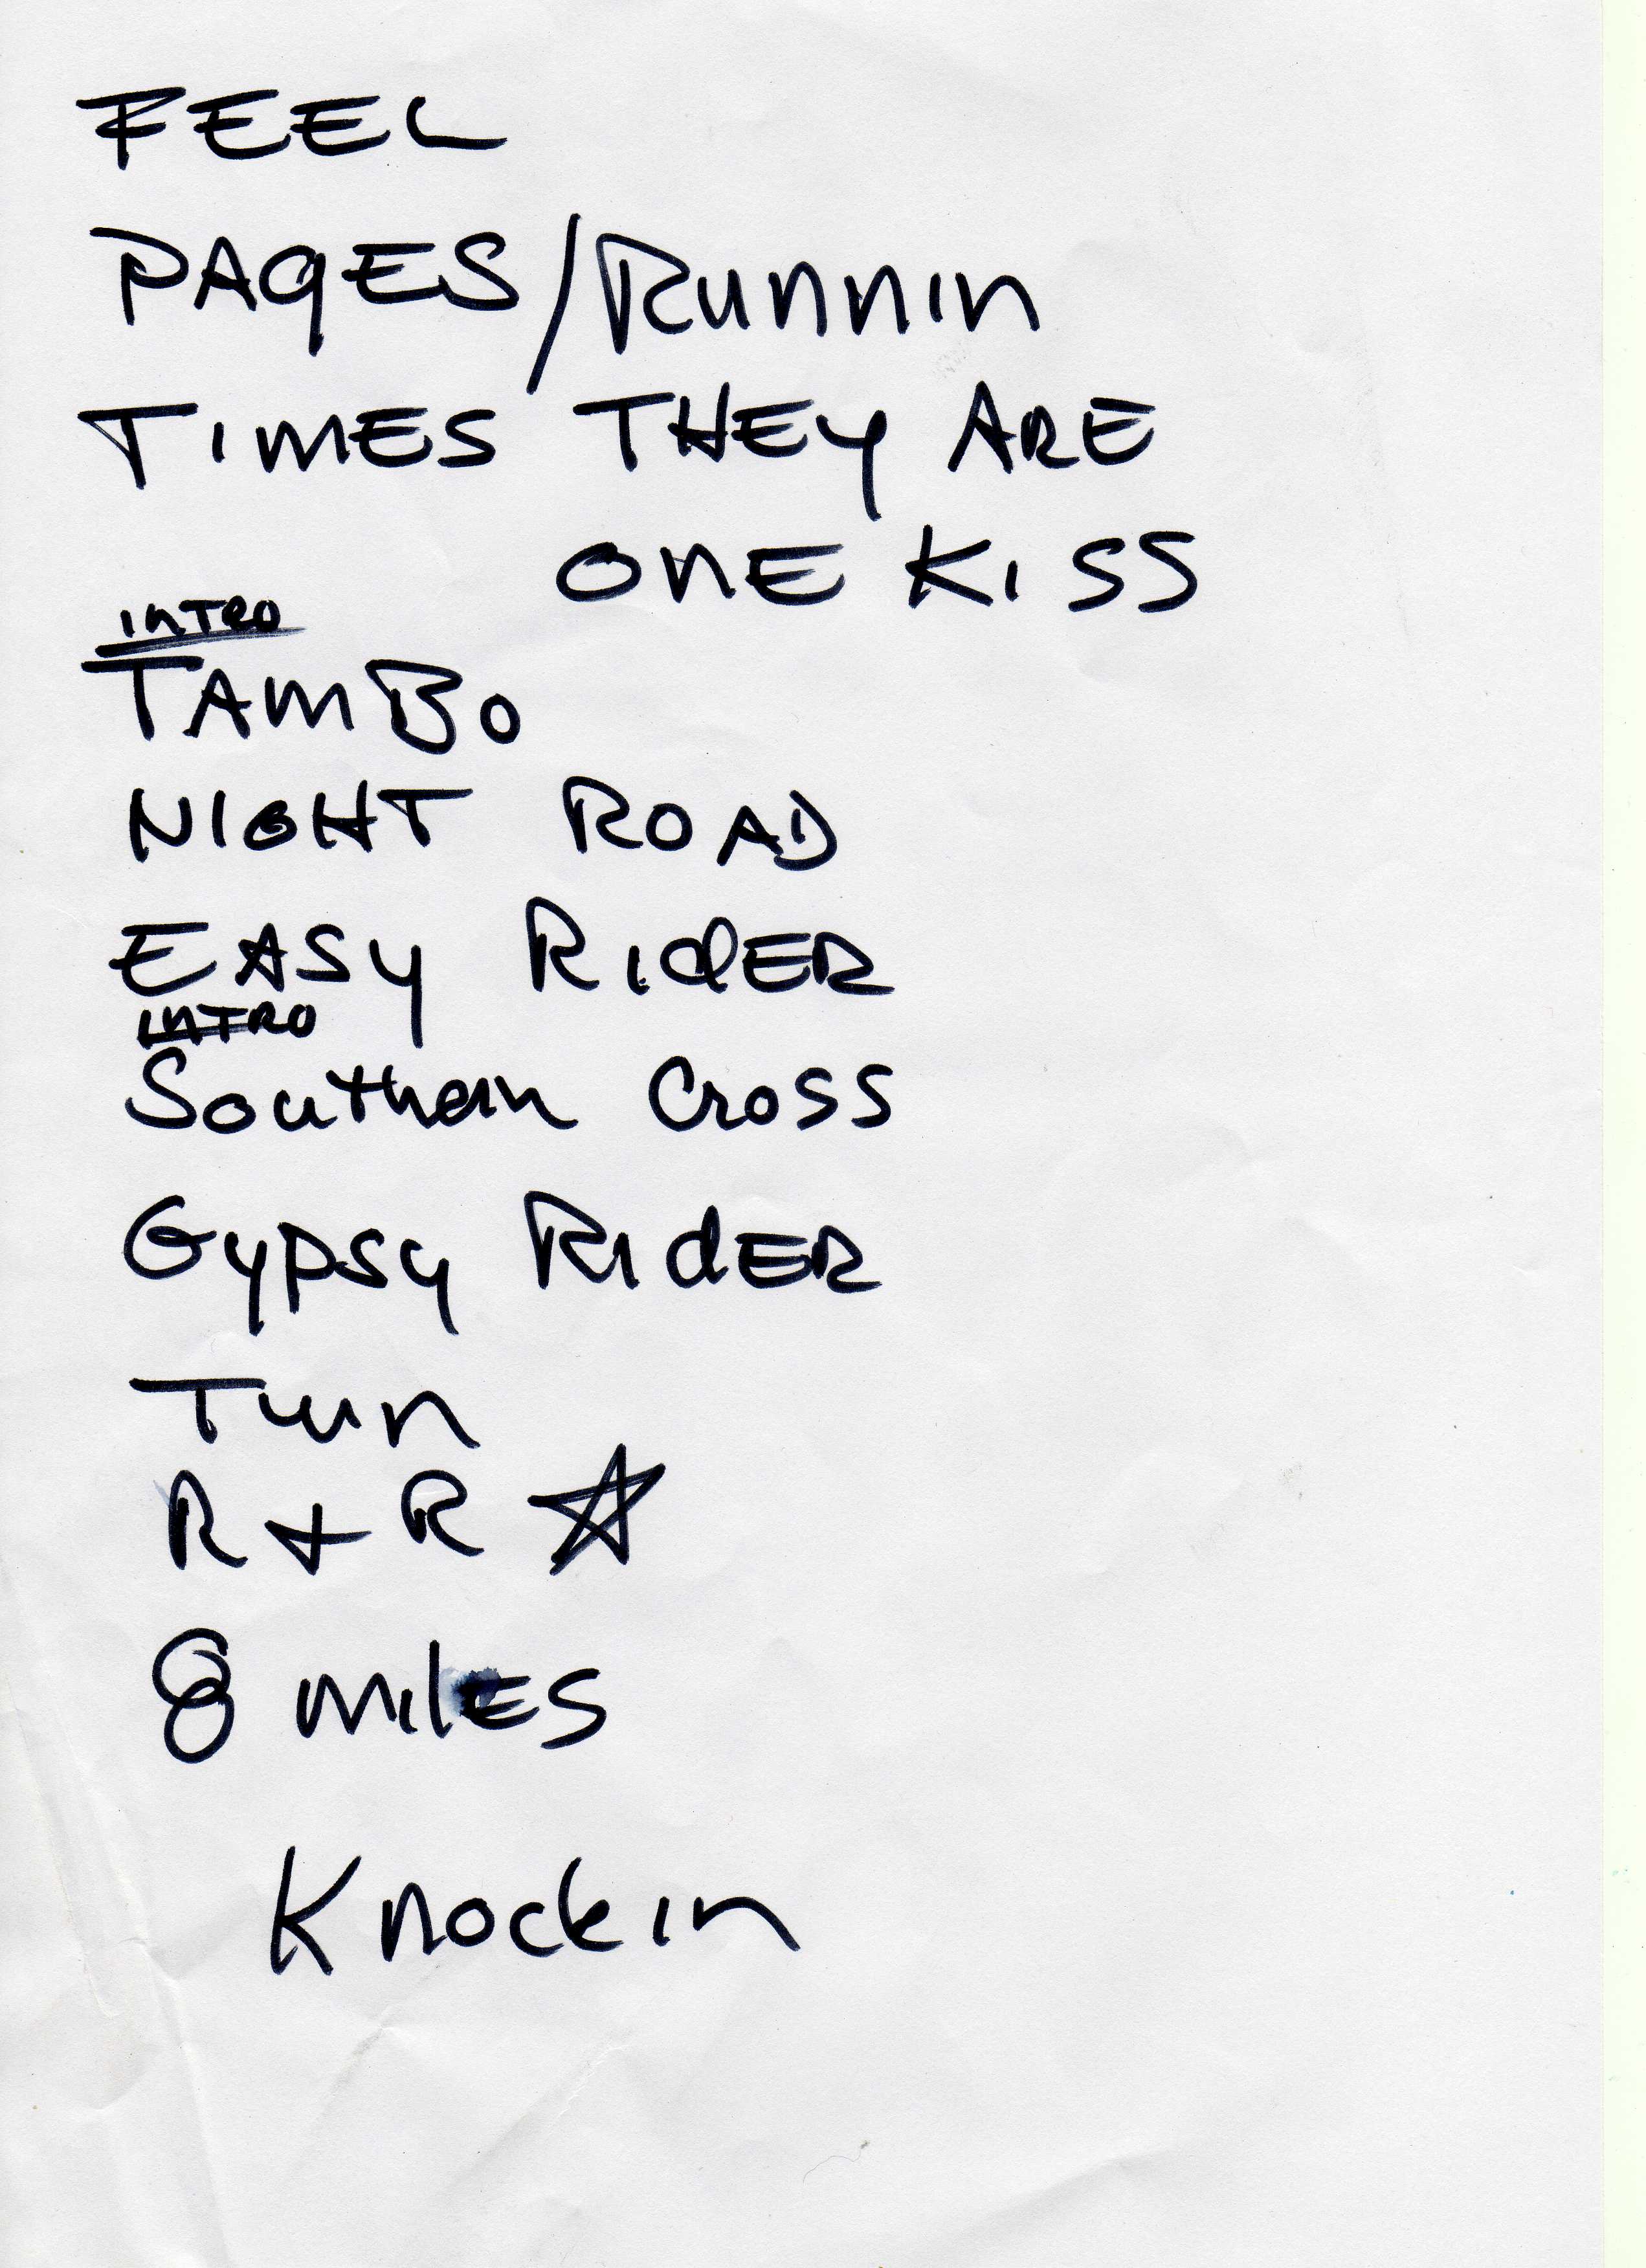 FEEL
PAGES/Runnin
TIMES THEY ARE
ONE KISS
INTRO
TAMBO
NIGHT ROAD
EASY RIDER
INTRO
Southern Cross
Gypsy RIDER
Turn
R + R ☆
8 milES
Knockin